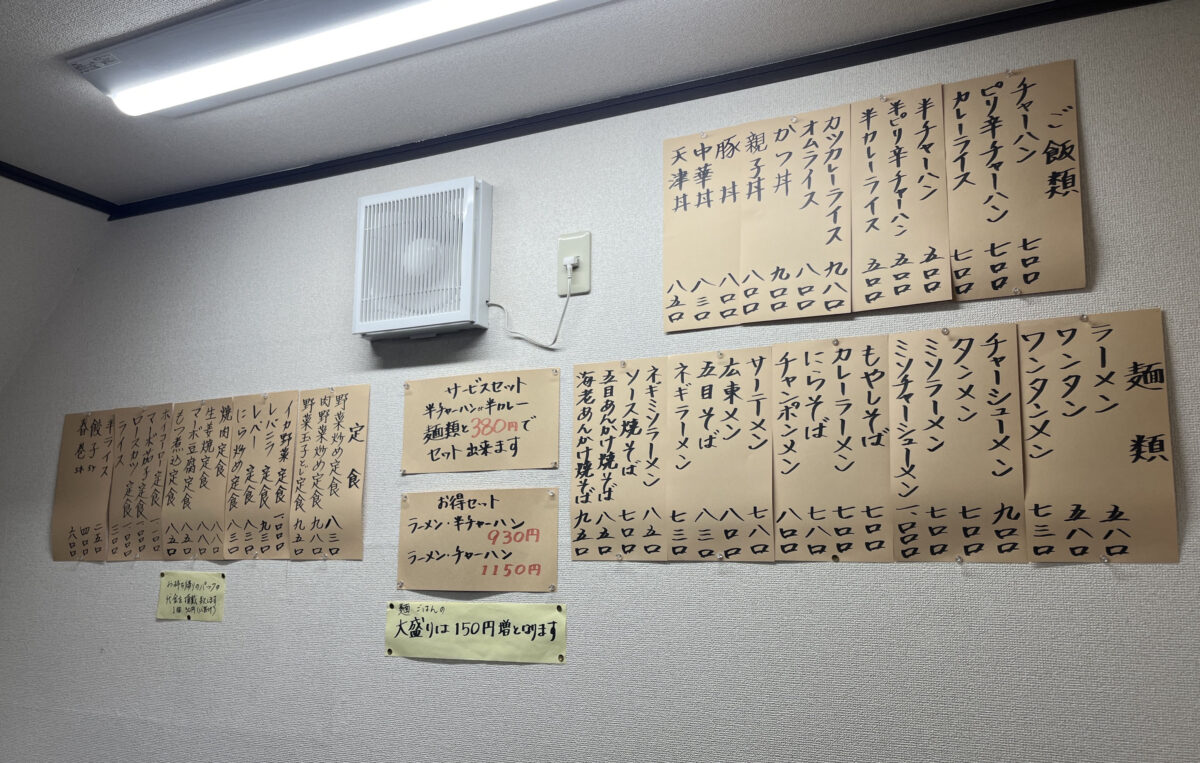 ご飯類
チャーハン 七〇〇
ピリ辛チャーハン 七〇〇
カレーライス 七〇〇
半チャーハン 五〇〇
半ピリ辛チャーハン 五〇〇
半カレーライス 五〇〇
カツカレーライス 九八〇
オムライス 八〇〇
かつ丼 九〇〇
親子丼 八〇〇
豚丼 八〇〇
中華丼 八三〇
天津丼 八五〇
麺類
ラーメン 五八〇
ワンタン 五八〇
ワンタンメン 七三〇
チャーシューメン 九〇〇
タンメン 七〇〇
ミソラーメン 七〇〇
ミソチャーシューメン 一、〇〇〇
もやしそば 七〇〇
カレーラーメン 七〇〇
にらそば 七八〇
チャンポンメン 八〇〇
サーテーメン 七八〇
広東メン 八〇〇
五目そば 八三〇
ネギラーメン 七三〇
ネギミソラーメン 八五〇
ソース焼そば 七〇〇
五目あんかけ焼そば 八五〇
海老あんかけ焼そば 九五〇
サービスセット
半チャーハン 半カレー
麺類と380円で
セット出来ます
お得セット
ラーメン・半チャーハン
930円
ラーメン・チャーハン
1150円
麺 ごはんの
大盛りは150円増となります
定食
野菜炒め定食 八三〇
肉野菜炒め定食 九八〇
野菜玉子とじ定食 九五〇
イカ野菜定食 一、〇〇〇
レバニラ定食 九三〇
レバー定食 八三〇
にら炒め定食 八三〇
焼肉定食
生姜焼定食
マーボ豆腐定食 八八〇
もつ煮込定食 八五〇
ホイコーロー定食
マーボ茄子定食
ロースカツ定食
ライス
半ライス
餃子
春巻 六〇〇